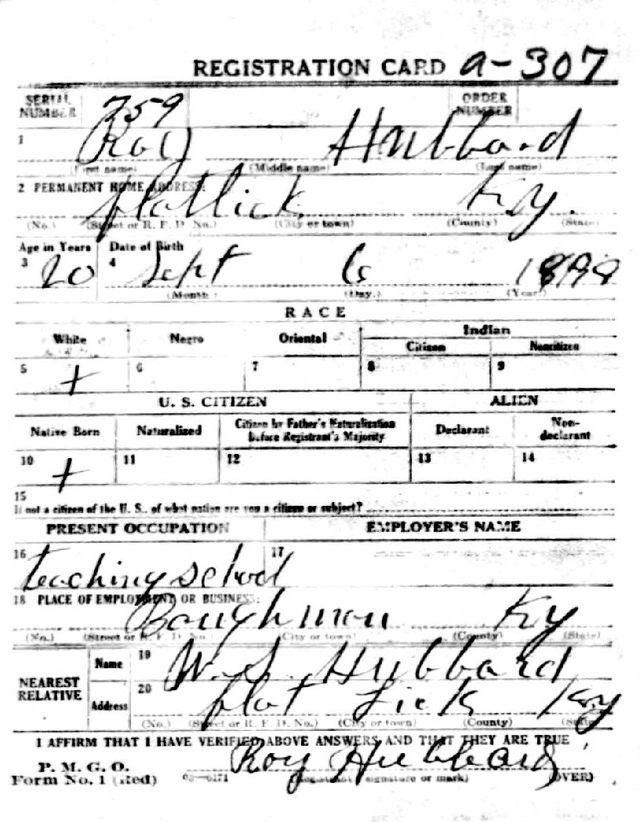 REGISTRATION CARD a-307
SERIAL NUMBER 759 ORDER NUMBER
1 Roy Hubbard
(First name) (Middle name) (Last name)
2 PERMANENT HOME ADDRESS:
flatlick Ky.
(No.) (Street or R. F. D. No.) (City or town) (County) (State)
Age in Years Date of Birth
3 20 4 Sept 6 1898
(Month) (Day.) (Year)
RACE
White Negro Oriental Indian
Citizen Noncitizen
5 + 6 7 8 9
U. S. CITIZEN ALIEN
Native Born Naturalized Citizen by Father's Naturalization before Registrant's Majority Declarant Non-declarant
10 + 11 12 13 14
15
If not a citizen of the U. S., of what nation are you a citizen or subject?
PRESENT OCCUPATION EMPLOYER'S NAME
16 teaching school 17
18 PLACE OF EMPLOYMENT OR BUSINESS:
Baughman Ky
(No.) (Street or R. F. D. No.) (City or town) (County) (State)
NEAREST RELATIVE
Name 19 W. S. Hubbard
Address 20 flat Lick Ky
(No.) (Street or R. F. D. No.) (City or town) (County) (State)
I AFFIRM THAT I HAVE VERIFIED ABOVE ANSWERS AND THAT THEY ARE TRUE
P. M. G. O.
Form No. 1 (Red) Roy Hubbard
(Registrant's signature or mark) (OVER)